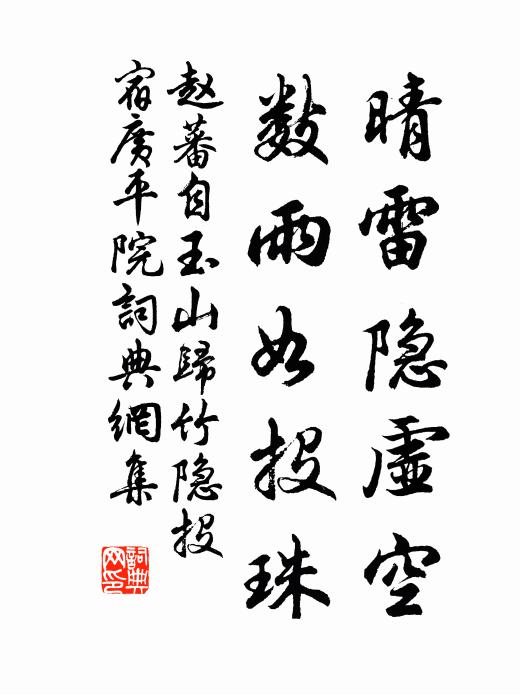 晴雷隐虚空
数雨如投珠
赵蕃自玉山歸竹隐投
宿廣平院詞典網集
詞典
网印